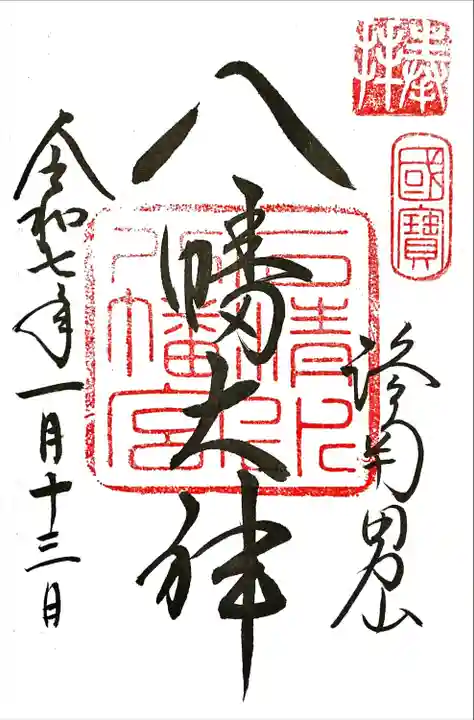 奉拝
國寶
洛南男山
八幡大神
石清水
八幡宮
令和七年一月十三日